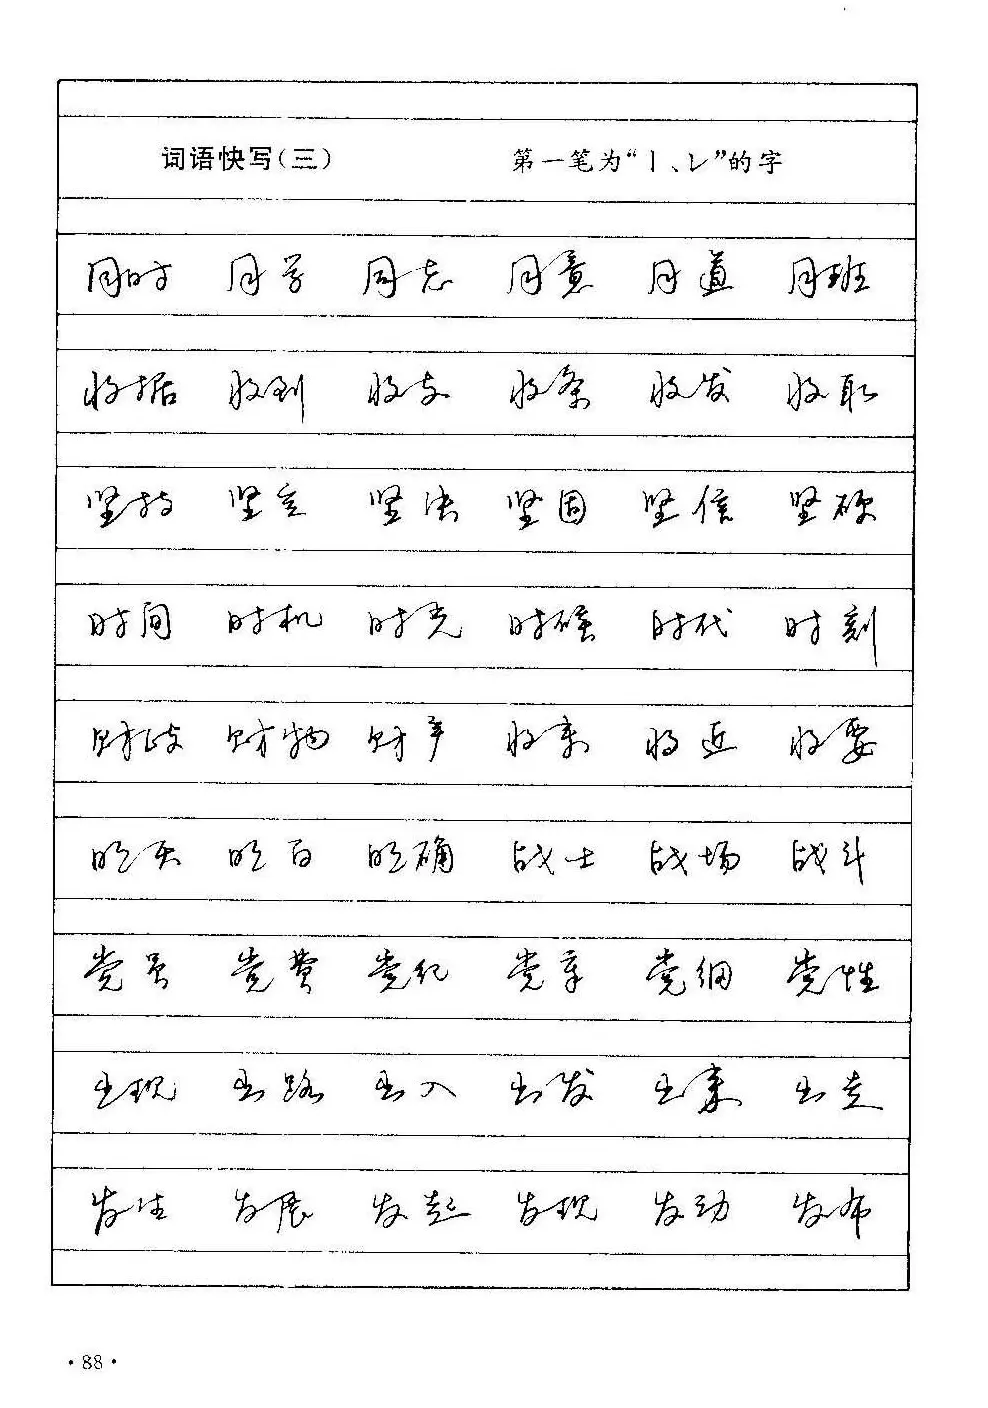 词语快写(三) 第一笔为“丨、レ”的字
同时 同学 同志 同意 同道 同班
收据 收到 收支 收条 收发 收取
坚持 坚立 坚决 坚固 坚信 坚硬
时间 时机 时光 时碰 时代 时刻
财政 财物 财产 将来 将近 将要
明天 明白 明确 战士 战场 战斗
党员 党费 党纪 党章 党纲 党性
出现 出路 出入 出发 出来 出走
发生 发展 发起 发现 发动 发布
·88·